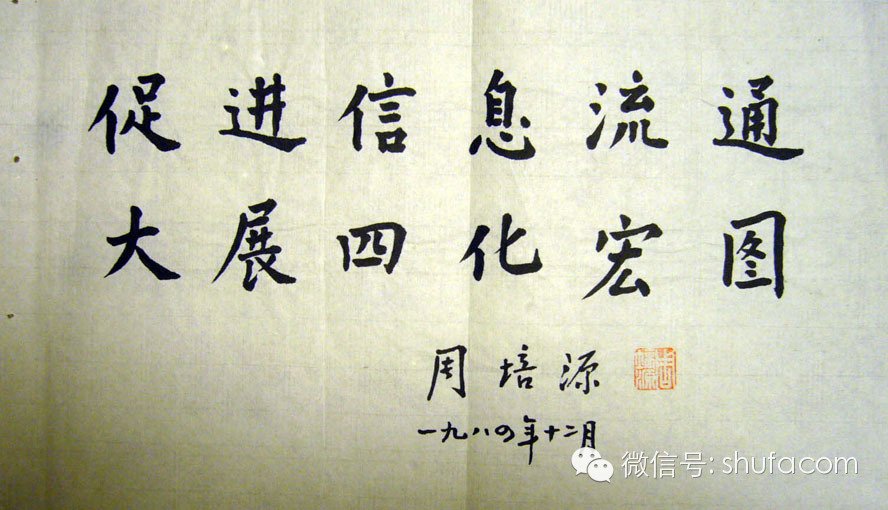 促进信息流通
大展四化宏图
周培源
一九八四年十二月
微信号: shufacom